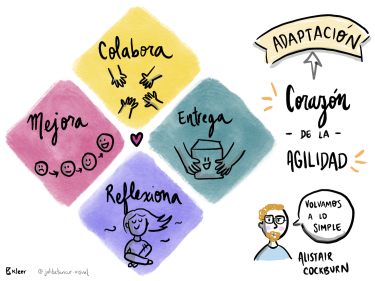 Colabora
Mejora
Entrega
Reflexiona
ADAPTACIÓN
Corazón
- DE LA -
AGILIDAD
VOLVAMOS
A LO
SIMPLE
ALISTAIR
COCKBURN
Kleer